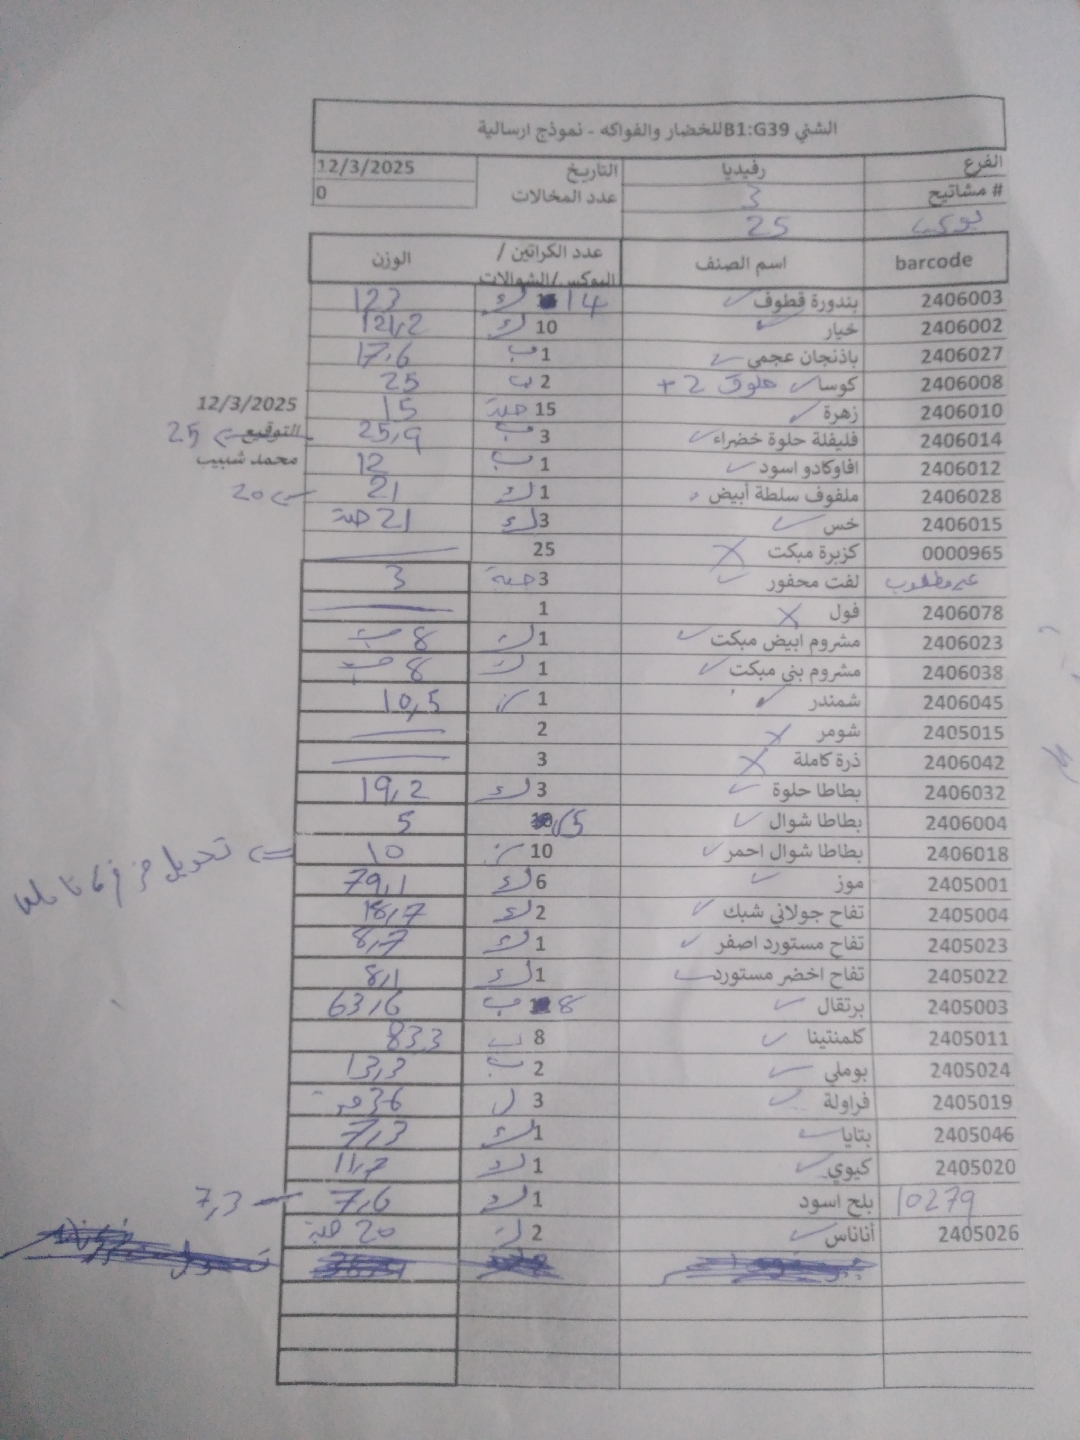 الشني B1:G39للخضار والفواكه - نموذج ارسالية
الفرع رفيديا التاريخ 12/3/2025
# مشاتيح 3 عدد المخالات 0
25
barcode اسم الصنف عدد الكراتين / البوكس/الشوالات الوزن
2406003 بندورة قطوف 14 ك 123
2406002 خيار 10 ك 121,2
2406027 باذنجان عجمي 1 ب 17,6
2406008 كوسا + 2 2 ب 25
2406010 زهرة 15 حبة 15
12/3/2025
2406014 فليفلة حلوة خضراء 3 ب 25,9
التوقيع 25
2406012 افاوكادو اسود 1 ب 12
محمد شبيب
2406028 ملفوف سلطة أبيض 1 ك 21
20
2406015 خس 3 ك 21 حبة
0000965 كزبرة مبكت 25
غير مطلوب لفت محفور 3 حبة 3
2406078 فول 1
2406023 مشروم ابيض مبكت 1 ك 8 ب
2406038 مشروم بني مبكت 1 ك 8 ب
2406045 شمندر 1 10,5
2405015 شومر 2
2406042 ذرة كاملة 3
2406032 بطاطا حلوة 3 ك 19,2
2406004 بطاطا شوال 5 5
2406018 بطاطا شوال احمر 10 10
تحويل
2405001 موز 6 ك 79,1
2405004 تفاح جولاني شبك 2 ك 18,7
2405023 تفاح مستورد اصفر 1 ك 8,7
2405022 تفاح اخضر مستورد 1 ك 8,1
2405003 برتقال 8 ب 63,6
2405011 كلمنتينا 8 ب 83,3
2405024 بوملي 2 ب 13,3
2405019 فراولة 3 36
2405046 بتايا 1 ك 7,3
2405020 كيوي 1 ك 11,7
10279 بلح اسود 1 ك 7,6
7,3
2405026 أناناس 2 ك 20 حبة